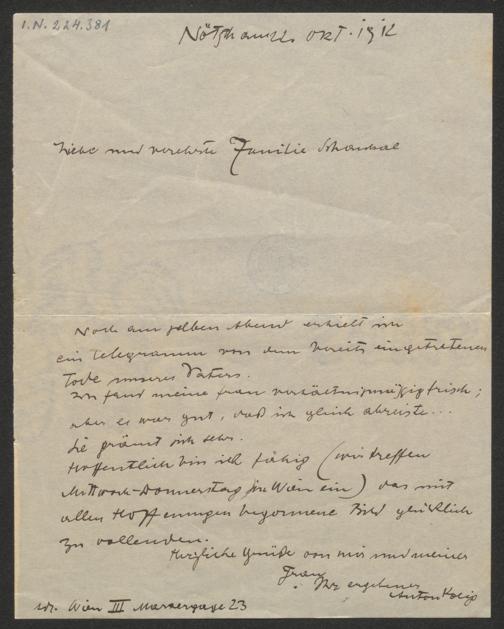 I.N. 224.381
Nötsch am 22. Okt. 1912
Liebe und verehrte Familie Schaukal
Noch am selben Abend erhielt ich
ein Telegramm von dem bereits eingetretenen
Tode unseres Vaters.
Ich fand meine Frau verhältnismäßig frisch;
aber es war gut, daß ich gleich abreiste...
Sie grämt sich sehr.
Hoffentlich bin ich fähig (wir treffen
Mittwoch-Donnerstag in Wien ein) das mit
allen Hoffnungen begonnene Bild glücklich
zu vollenden.
Herzliche Grüße von mir und meiner
Frau
Ihr ergebener
Anton Kolig
adr. Wien III Marxergasse 23